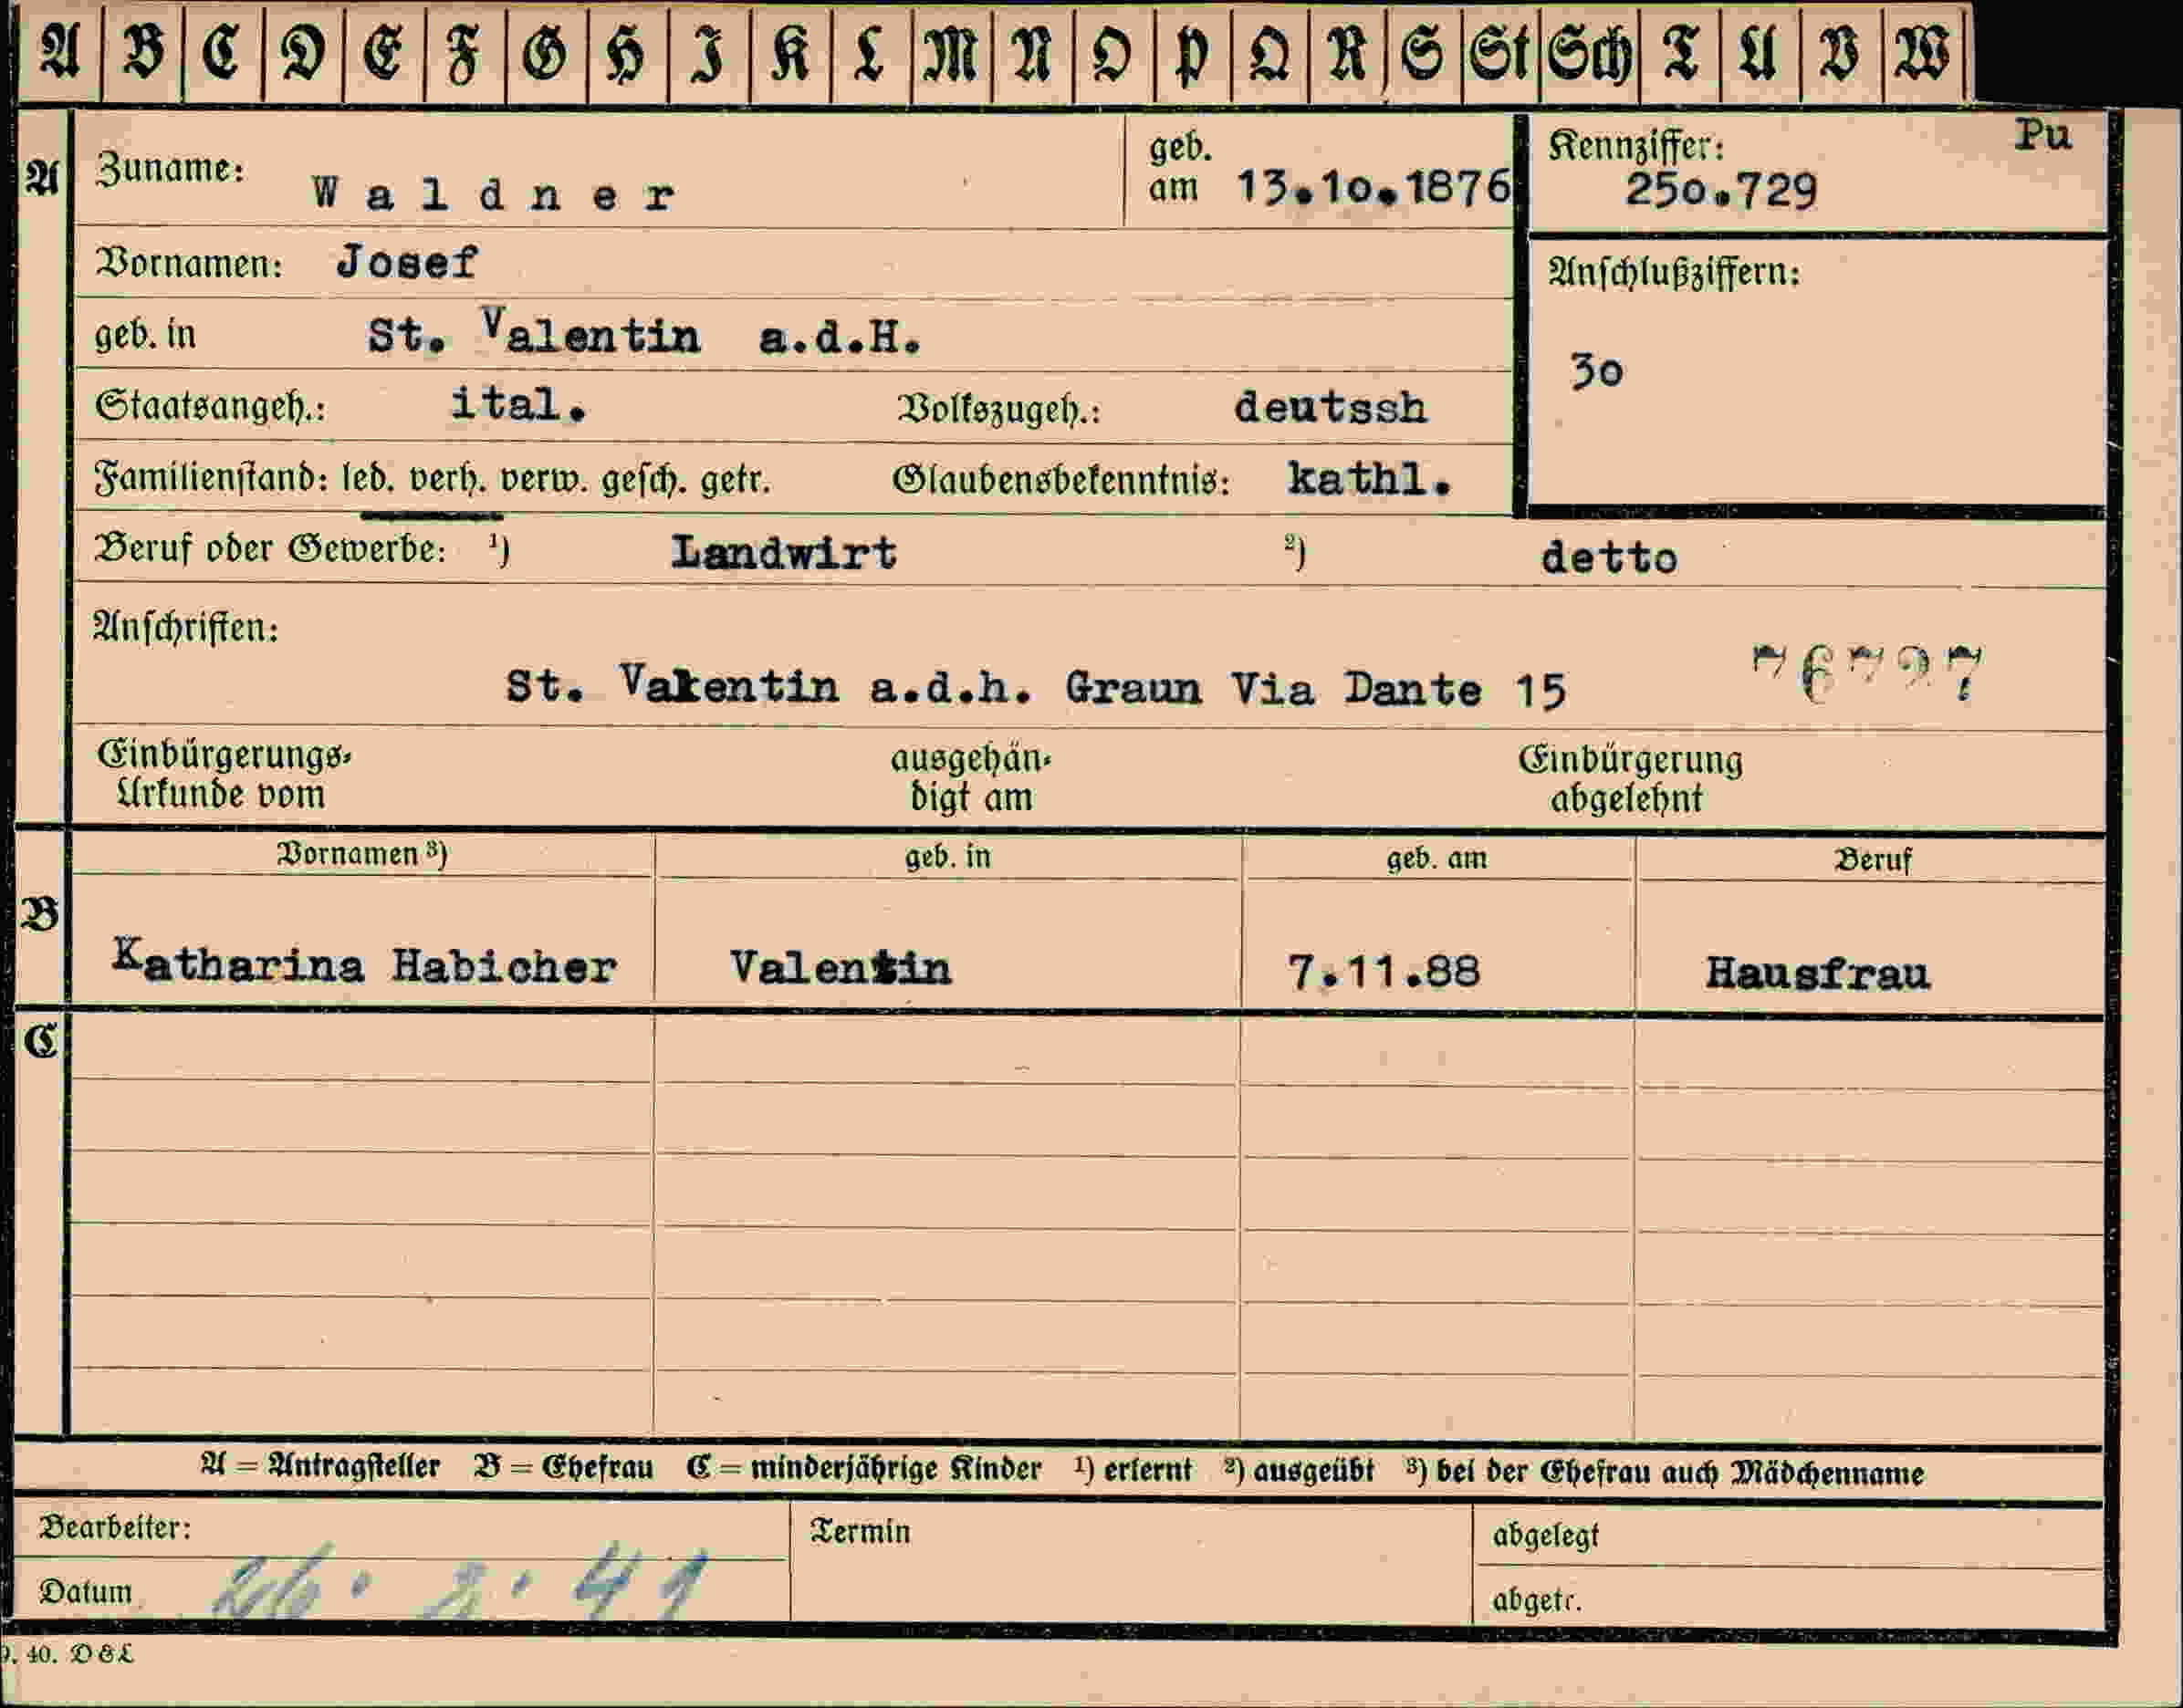 A B C D E F G H I K L M N O P Q R S St Sch T U V W
A Zuname: Waldner geb. am 13.10.1876 Kennziffer: 250.729 Pu
Vornamen: Josef Anschlußziffern:
geb. in St. Valentin a.d.H. 30
Staatsangeh.: ital. Volkszugeh.: deutssh
Familienstand: led. verh. verw. gesch. getr. Glaubensbekenntnis: kathl.
Beruf oder Gewerbe: 1) Landwirt 2) detto
Anschriften:
St. Valentin a.d.h. Graun Via Dante 15 76727
Einbürgerungs- ausgehän- Einbürgerung
Urkunde vom digt am abgelehnt
Vornamen 3) geb. in geb. am Beruf
B
Katharina Habicher Valentin 7.11.88 Hausfrau
C
A = Antragsteller B = Ehefrau C = minderjährige Kinder 1) erlernt 2) ausgeübt 3) bei der Ehefrau auch Mädchenname
Bearbeiter: Termin abgelegt
Datum 26. 41 abgetr.
40. D&L